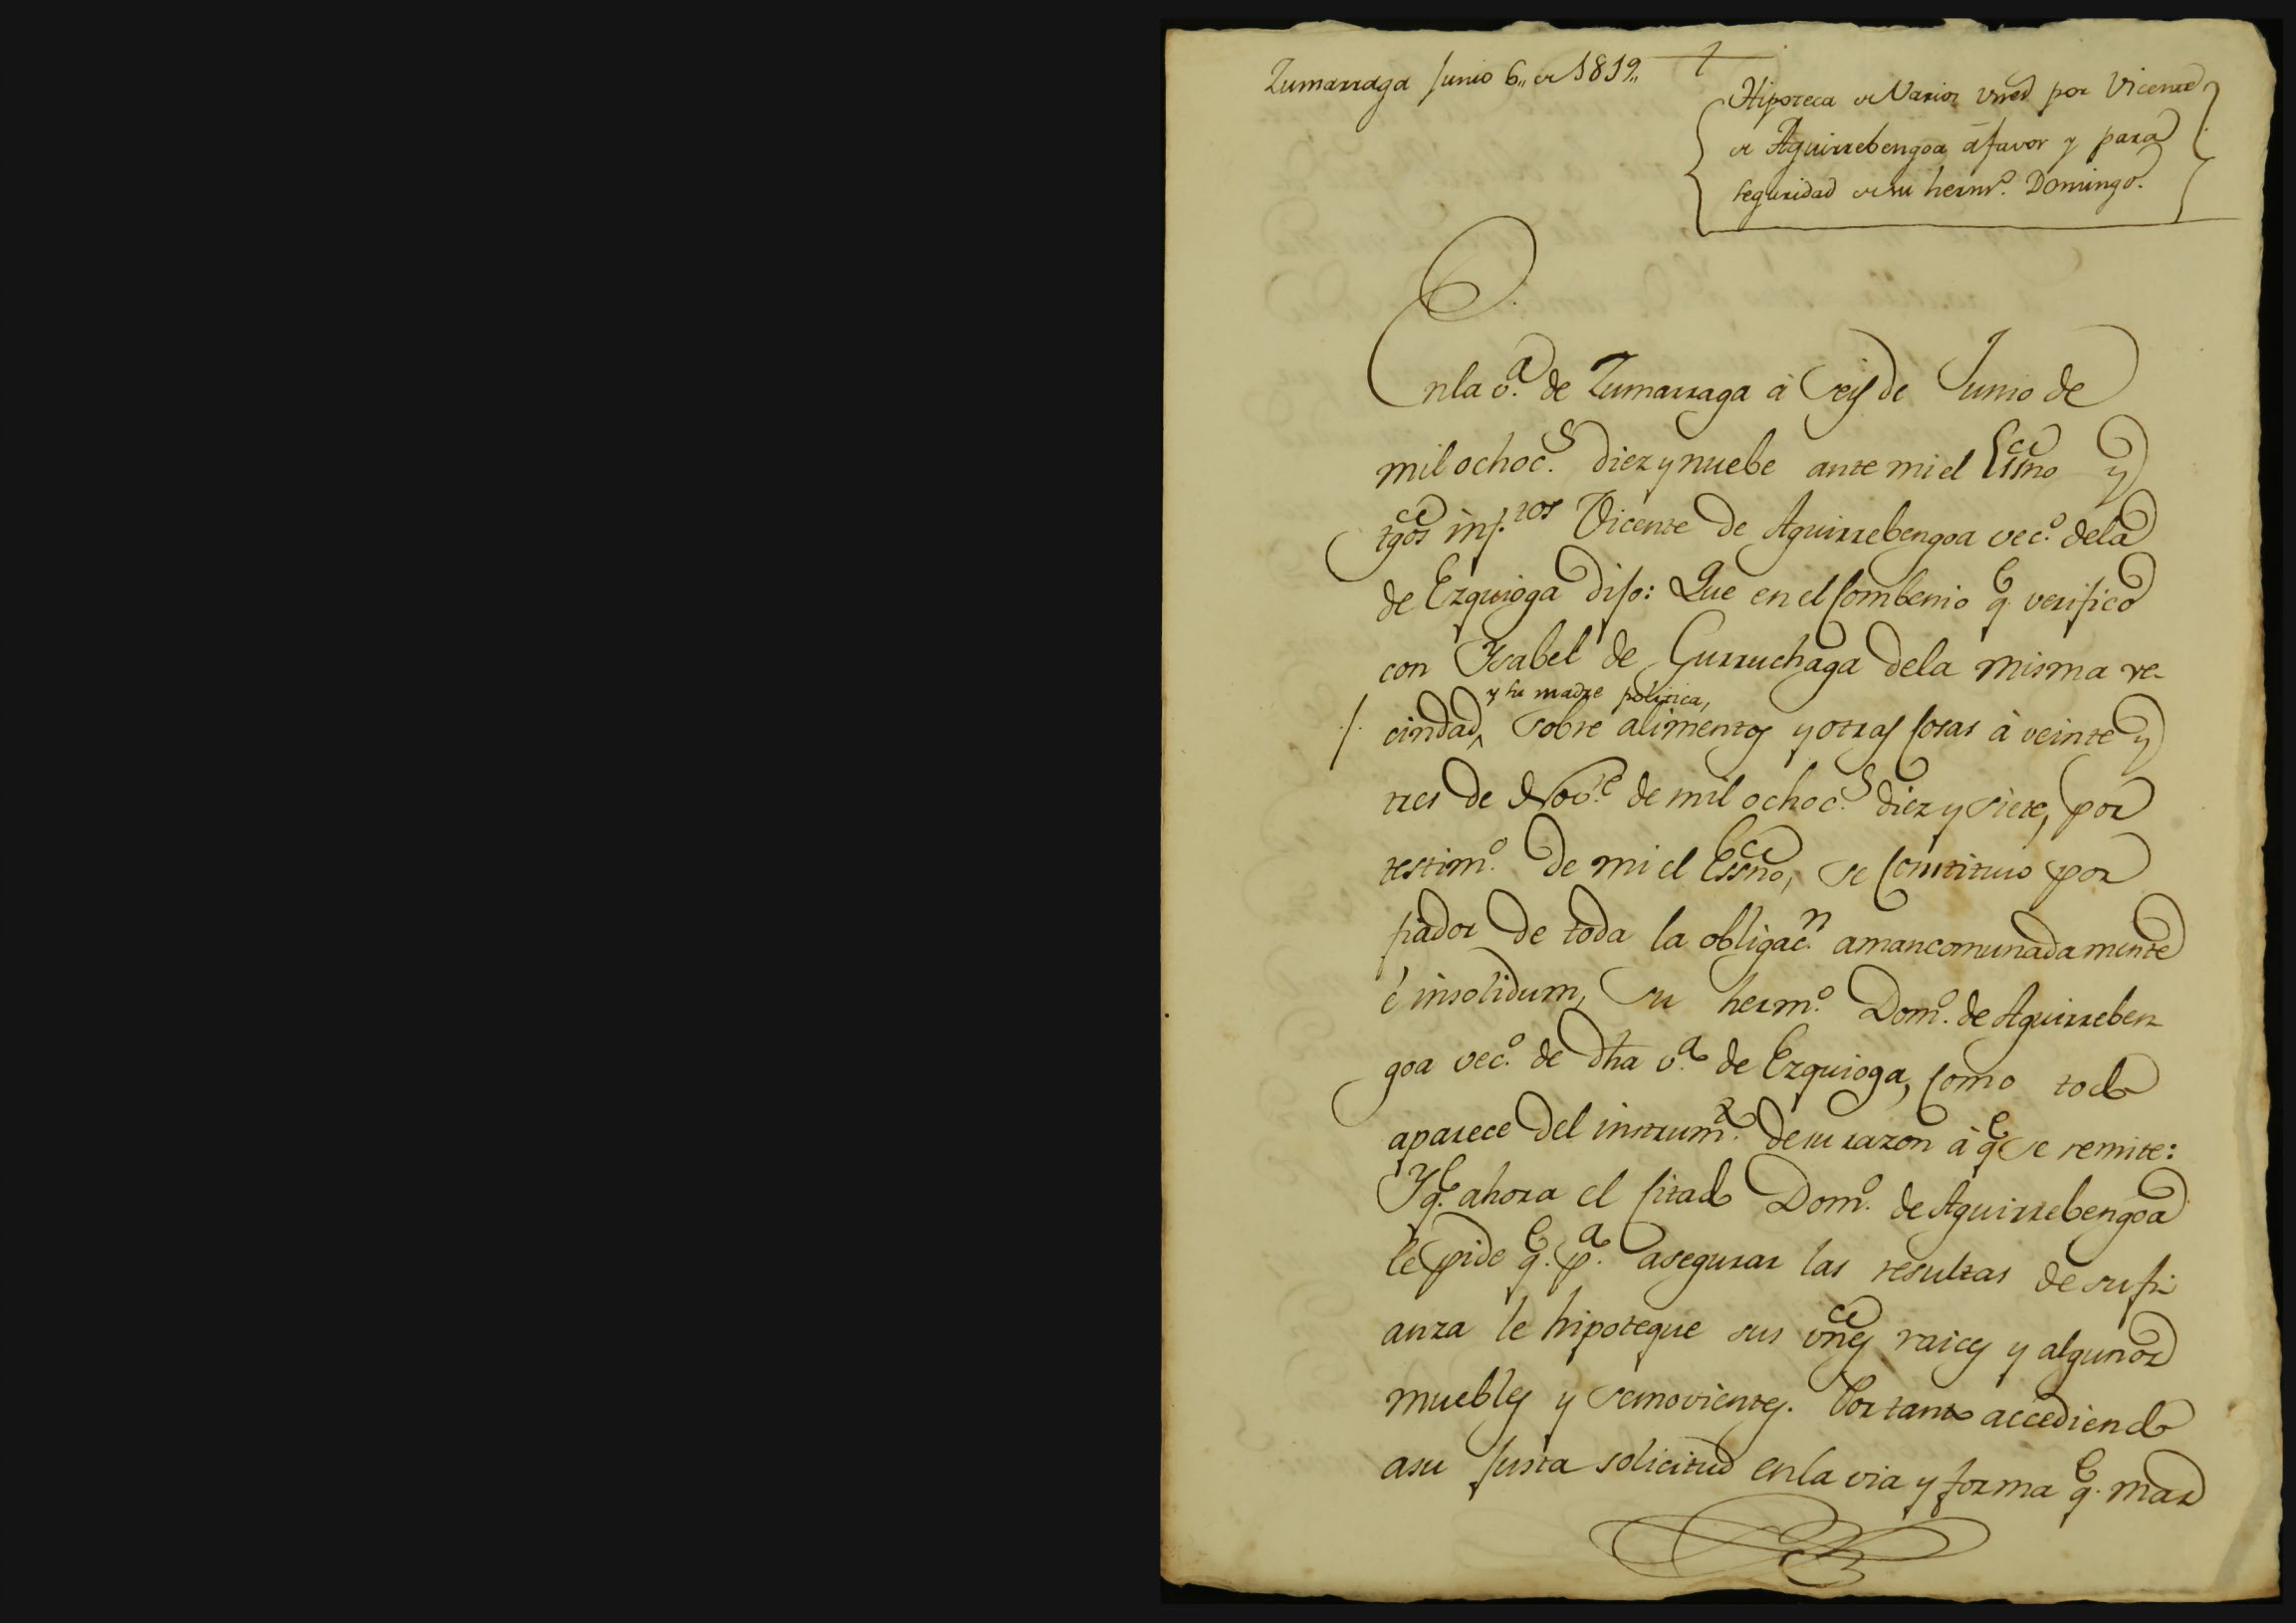 Zumarraga Junio 6,, de 1819,,
Hipoteca de Varios vnes por Vicente
de Aguirrebengoa á favor y para
seguridad de su herm.º Domingo.
En la v.ª de Zumarraga à seis de Junio de
mil ochoc.s diez y nuebe ante mi el Essno y
tgos inf.tos Vicente de Aguirrebengoa vec.º dela
de Ezquioga dijo: Que en el Combenio q.e verificó
con Ysabel de Gurruchaga dela misma ve-
y su madre politica,
cindad, sobre alimentos y otras Cosas à veinte y
tres de Nov.re de mil ochoc.s diez y siete, por
testim.º de mi el Essno, se Constituio por
fiador de toda la obligac.n amancomunadamente
è insolidum, su herm.º Dom.º de Aguirreben
goa vec.º de dha v.ª de Ezquioga, Como todo
aparece del instrum.to de su razon à q.e se remite:
Y q.e ahora el Citado Dom.º de Aguirrebengoa
le pide q.e p.a asegurar las resultas de su fi
anza le hipoteque sus vnes raices y algunos
muebles y semovientes. Por tanto accediendo
a su Justa solicitud en la via y forma q.e mas